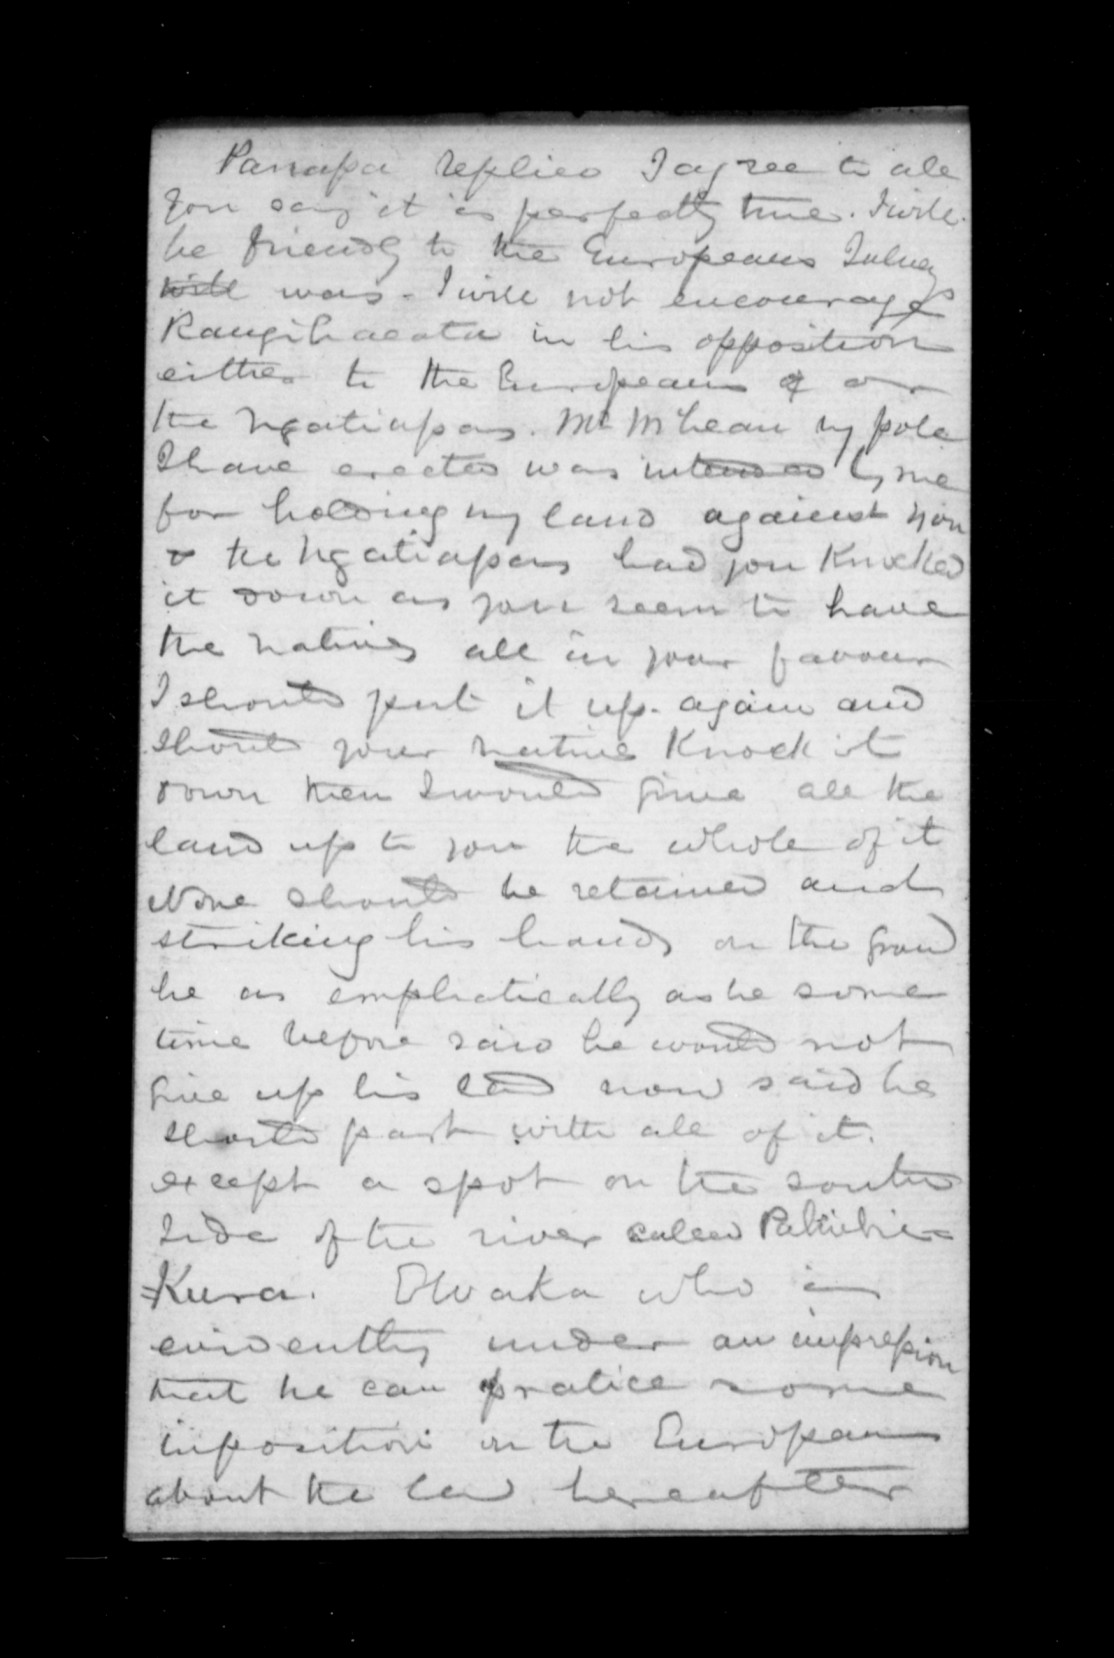 Panapa replied I agree to all
you say it is perfectly true. I will
be friendly to the Europeans I always
will was - I will not encourage
Rangihaeata in his opposition
either to the Europeans or
the Ngatiapas. Mr McLean my pole
I have erected was intended by me
for holding my land against you
& the Ngatiapas had you Knocked
it down as you seem to have
the natives all in your favour
I should put it up again and
should your natives Knock it
down then I would give all the
land up to you the whole of it
None should be retained and
striking his hands on the ground
he as emphatically as he some
time before said he would not
give up his land now said he
should part with all of it.
except a spot on the south
side of the river called
=Kura. E Waka who is
evidently under an impression
that he can pratice some
imposition on the Europeans
about the land hereafter